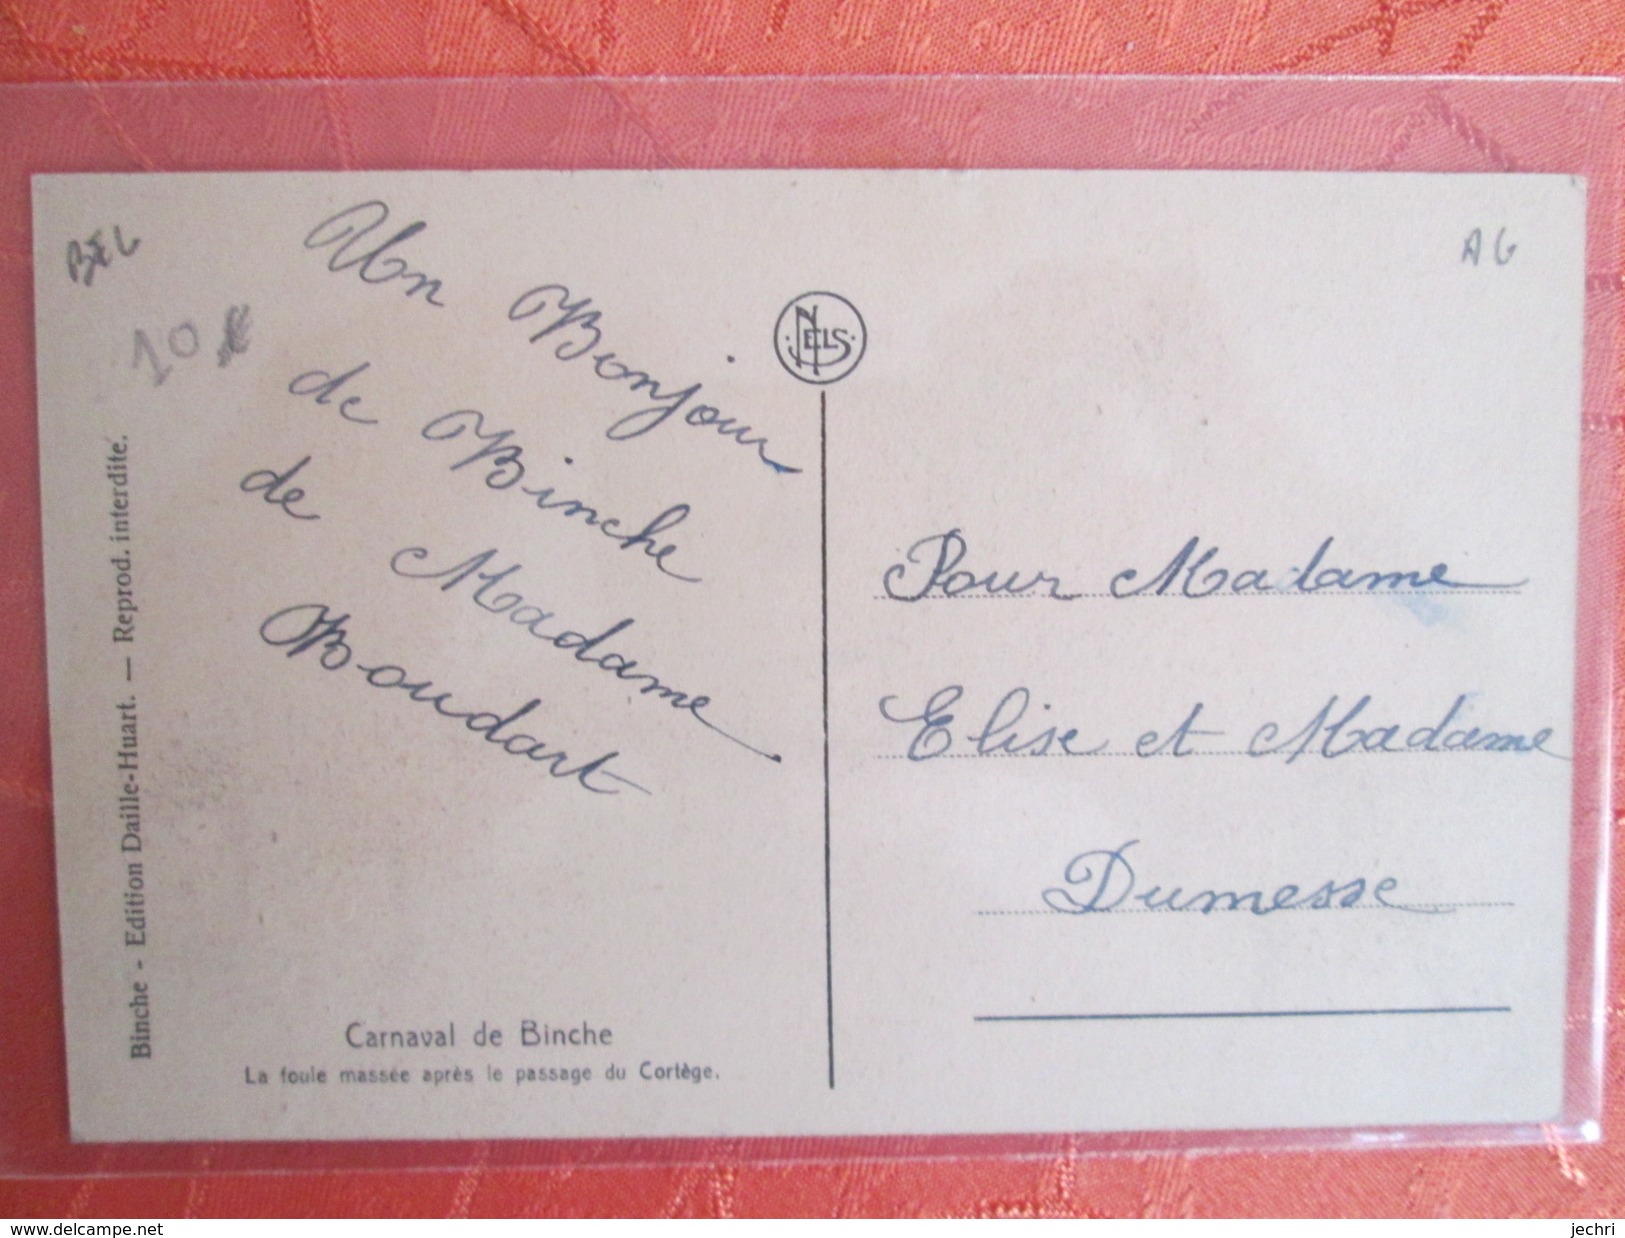 BEL
10€
Un Bonjour
de Binche
de Madame
Boudart
Binche - Edition Daille-Huart. — Reprod. interdite.
Carnaval de Binche
La foule massée après le passage du Cortège.
NELS
AG
Pour Madame
Elise et Madame
Dumesse
www.delcampe.net
jechri